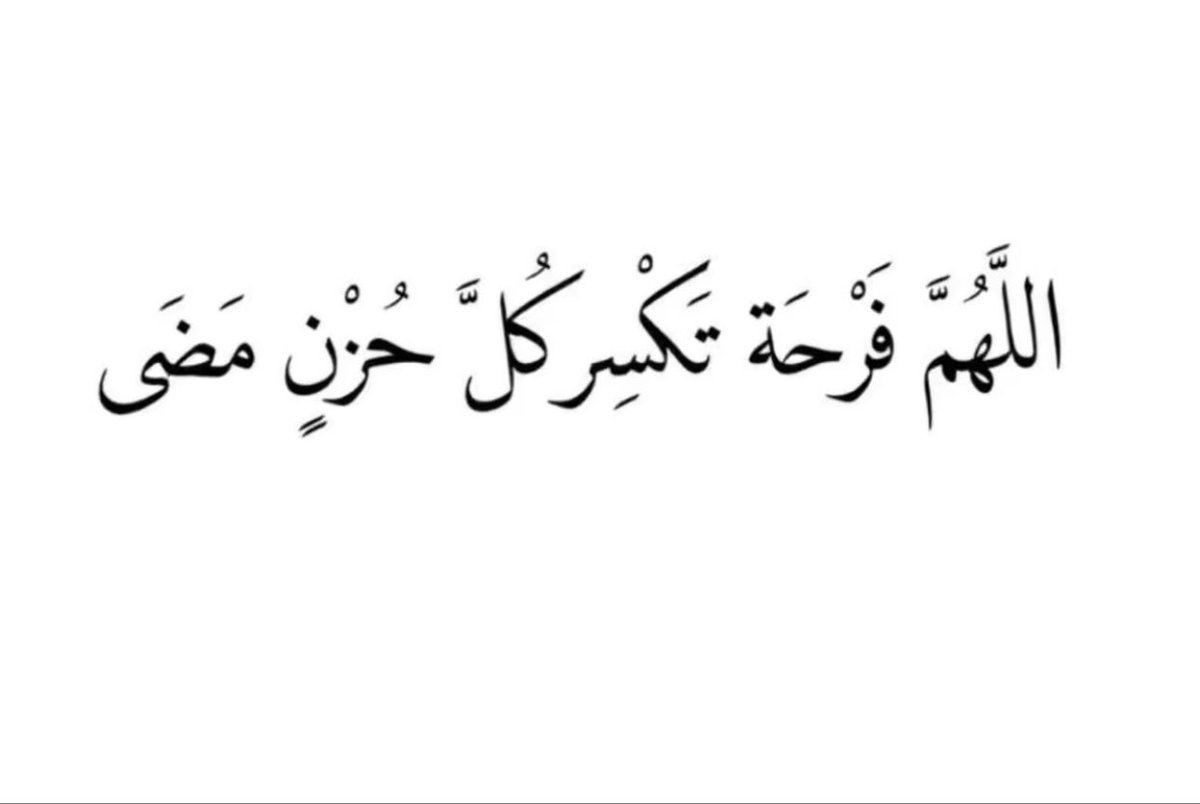 اللَّهُمَّ فَرْحَة تَكْسِر كُلَّ حُزْنٍ مَضَى